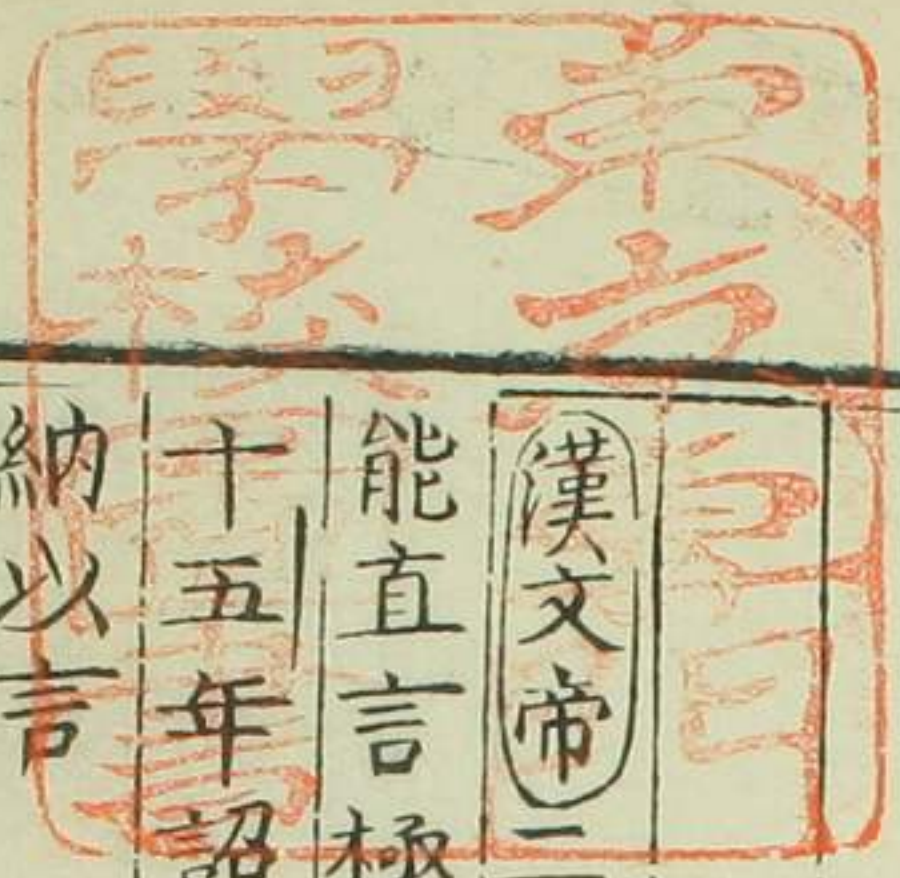 漢文帝二
能直言極
十五年詔
納以言
學校